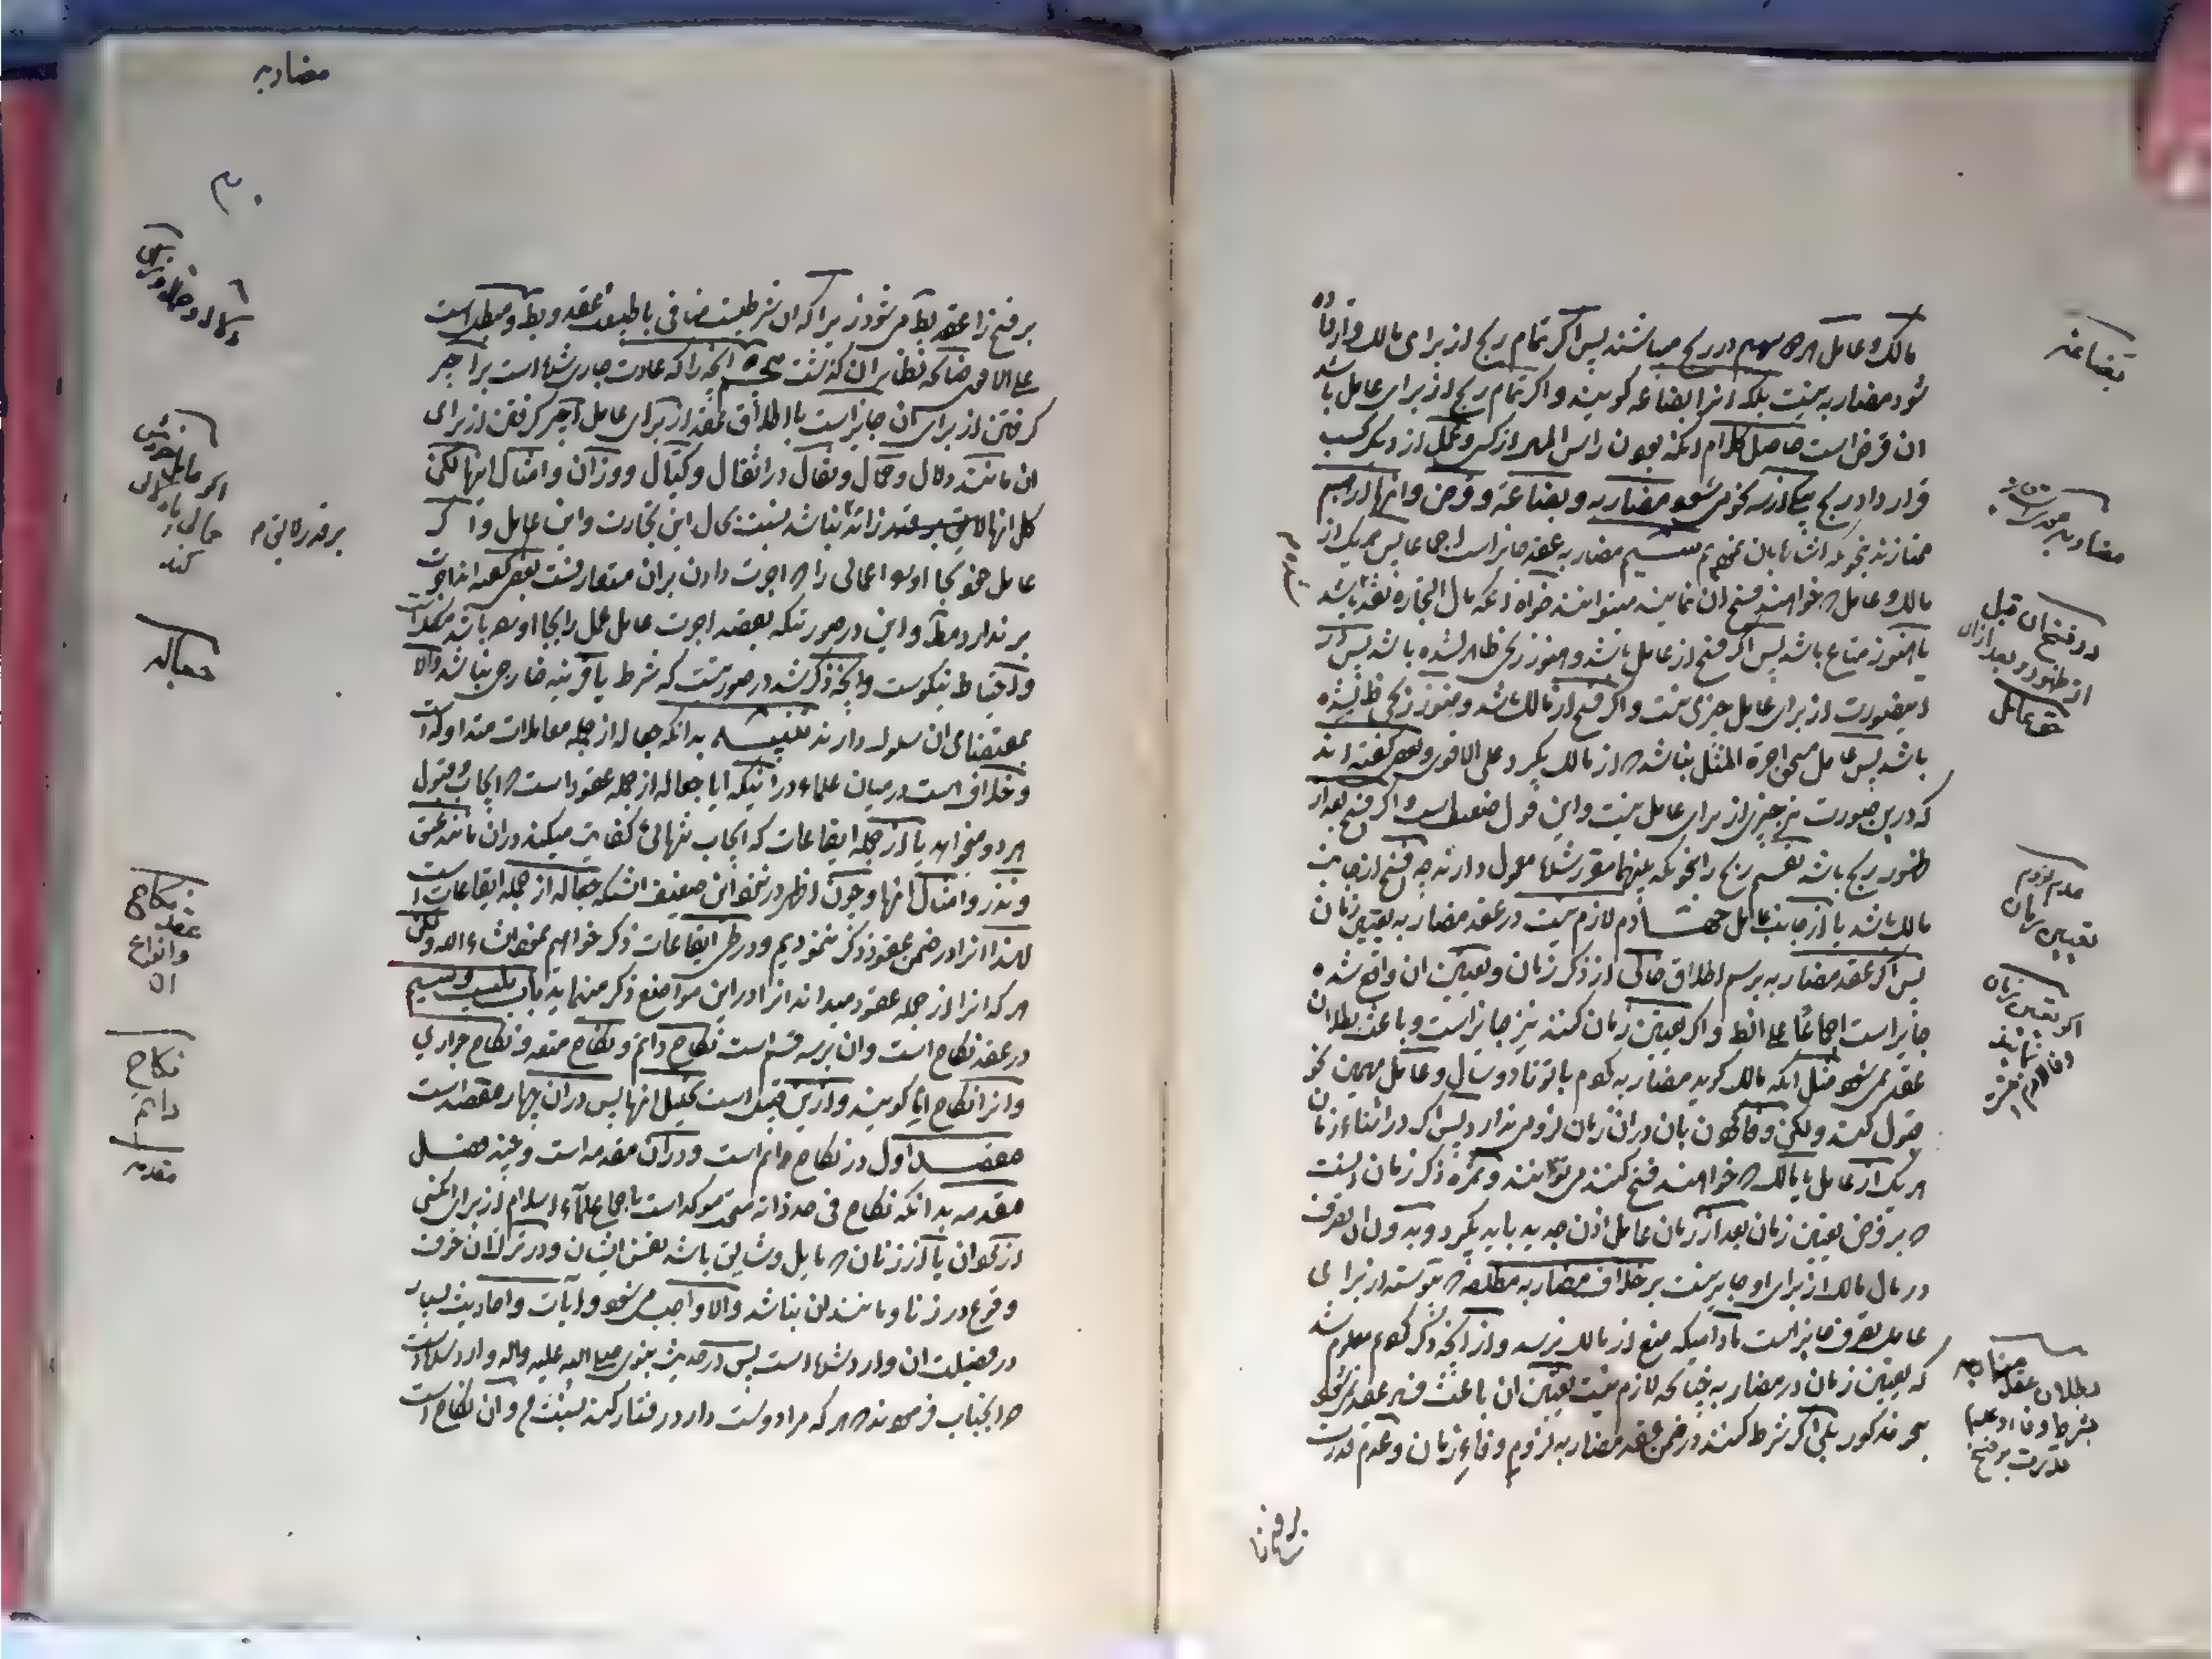 مالک و عامل هر دو سهیم در ربح میباشند پس اگر تمام ربح از برای مالک قرار داده
شود مضاربه نیست بلکه انرا بضاعه گویند و اگر تمام ربح از برای عامل باشد
ان قرض است حاصل کلام انکه بودن راس المال از کسی و عمل از دیگر کسب
قرار داد ربح بیکی از سه نحو می‌شود مضاربه و بضاعة و قرض و اینها از هم
ممتازند بنحوی که اشاره بان نمودیم سیم مضاربه عقد جایز است اجماعا پس هر یک از
مالک و عامل که خواهند فسخ ان نمایند میتوانند خواه انکه مال التجاره نقد باشد
یا هنوز متاع باشد پس اگر فسخ از عامل باشد و هنوز ربحی ظاهر نشده باشد پس در
اینصورت از برای عامل چیزی نیست و اگر فسخ از مالک باشد و هنوز ربحی ظاهر نشده
باشد پس عامل مستحق اجرة المثل میباشد که از مالک بگیرد علی الاقوی و بعضی گفته اند
که درین صورت نیز چیزی از برای عامل نیست و این قول ضعیف است و اگر فسخ بعد از
ظهور ربح باشد تقسیم ربح را بنحوی که بینهما مقرر شده معمول دارند چه فسخ از جانب
مالک باشد یا از جانب عامل چهارم لازم نیست در عقد مضاربه تعیین زمان
پس اگر عقد مضاربه برسم اطلاق خالی از ذکر زمان و تعیین ان واقع شده
جایز است اجماعا علی الظ و اگر تعیین زمان کنند نیز جایز است و باعث بطلان
عقد نمی‌شود مثل انکه مالک گوید مضاربه کردم با تو تا دو سال و عامل بهمین نحو
قبول کند ولکن وفا کردن بان در ان زمان لزومی ندارد پس اگر در اثناء زمان
هر یک از عامل یا مالک که خواهند فسخ کنند می‌توانند و ثمره ذکر زمان اینست
که بر فرض تعیین زمان بعد از زمان عامل اذن جدید باید بگیرد و بدون ان تصرف
در مال مالک از برای او جایز نیست بر خلاف مضاربه مطلقه که از برای
عامل تصرف جایز است مادامیکه منع از مالک نرسد و از انچه ذکر کردیم معلوم شد
که تعیین زمان در مضاربه چنانکه لازم نیست تعیین ان باعث فساد عقد نمی‌شود
بنحو مذکور بلی اگر شرط کنند در ضمن عقد مضاربه لزوم وفاء زمان و عدم قدرت
بضاعة
مضاربه عقدی است جایز
در فسخ ان قبل
از ظهور و بعد از ان
حق عامل
عدم لزوم
تعیین زمان
اگر تعیین زمان
نمایند
وفا لازم نیست
بطلان عقد مضاربه
بشرط وفا و عدم
قدرت بر فسخ
بر فسخ
مضاربه
بر فسخ انرا عقد بط می‌شود زیرا که ان شرطیست منافی با طبیعت عقد و بط و مبطل است
علی الاقوی چنانکه نظایر ان گذشت پنجم انچه را که عادت جاری شده است بر اجیر
گرفتن از برای ان جایز است با اطلاق عقد از برای عامل اجیر گرفتن از برای
ان مانند دلال و حمال و نقال در اثقال و کیال و وزان و امثال اینها لکن
کل انها لایق بر قدر زاید نباشد بنسبت بحال این تجارت و این عامل و اگر
عامل خود بجا اورد اعمالی را که اجرت دادن بران متعارفست بعضی گفته اند اجرت
بر ندارد مط و این در صورتیکه بقصد اجرت عامل عمل را بجا اورده باشد مشکلست
و احتیاط نیکوست و انچه ذکر شد در صورتیست که شرط یا قرینه خارجی نباشد والا
بمقتضای ان سلوک دارند تنبیه بدانکه جعاله از جمله معاملات متداوله است
و خلاف است در میان علماء در اینکه ایا جعاله از جمله عقود است که ایجاب و قبول
هر دو میخواهد یا از جمله ایقاعات که ایجاب تنهائی کفایت میکند در ان مانند عتق
و نذر و امثال انها و چون اظهر در نزد این ضعیف انستکه جعاله از جمله ایقاعات است
لهذا انرا در ضمن عقود ذکر ننمودیم و در طی ایقاعات ذکر خواهیم نمود انشاء الله ولکن
هر که انرا از جمله عقود میداند انرا در این مواضع ذکر مینماید باب بیست و سیم
در عقد نکاح است و ان بر سه قسم است نکاح دائم و نکاح متعه و نکاح جواری
و انرا نکاح اما گویند و ازین قبیل است تحلیل انها پس در ان چهار مقصد است
مقصد اول در نکاح دائم است و در ان مقدمه است و چند فصل
مقدمه بدانکه نکاح فی حد ذاته سنتی موکد است باجماع علمآء اسلام از برای کسی
از مردان یا از زنان که مایل و شایق باشد نفس ایشان و در ترک ان خوف
وقوع در زنا و مانند ان نباشد والا واجب می‌شود و ایات و احادیث بسیار
در فضیلت ان وارد شده است پس در حدیث نبوی صلی الله علیه واله وارد شده است
که انجناب فرمودند که هر که مرا دوست دارد رفتار کند بسنت من و ان نکاح است
اگر عامل خودش
حمالی یا دلالی
کند
جعاله
نکاح
عقد
و انواع
ان
نکاح
دائم
مقدمه